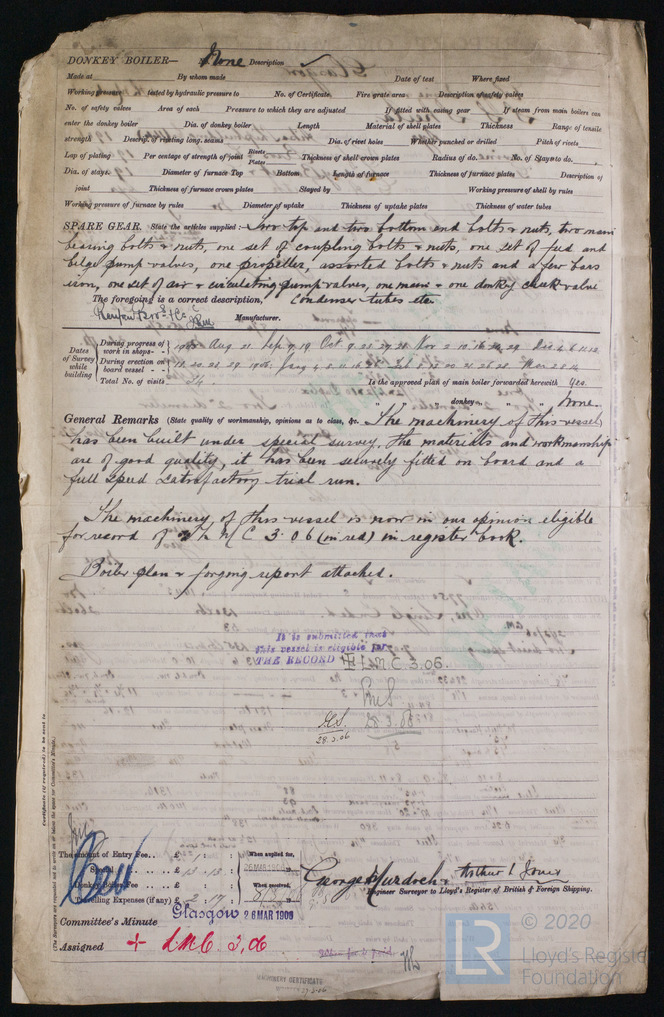 DONKEY BOILER— None Description
Made at By whom made Date of test Where fixed
Working pressure tested by hydraulic pressure to No. of Certificate Fire grate area Description of safety valves
No. of safety valves Area of each Pressure to which they are adjusted If fitted with easing gear If steam from main boilers can
enter the donkey boiler Dia. of donkey boiler Length Material of shell plates Thickness Range of tensile
strength Descrip. of riveting long. seams Dia. of rivet holes Whether punched or drilled Pitch of rivets
Lap of plating Per centage of strength of joint Rivets Plates Thickness of shell crown plates Radius of do. No. of Stays to do.
Dia. of stays Diameter of furnace Top Bottom Length of furnace Thickness of furnace plates Description of
joint Thickness of furnace crown plates Stayed by Working pressure of shell by rules
Working pressure of furnace by rules Diameter of uptake Thickness of uptake plates Thickness of water tubes
SPARE GEAR. State the articles supplied:— Two top and two bottom end bolts & nuts, two main
bearing bolts & nuts, one set of coupling bolts & nuts, one set of feed and
bilge pump valves, one propeller, assorted bolts & nuts and a few bars
iron, one set of air & circulating pump valves, one main & one donkey check valve
The foregoing is a correct description, Condenser tubes etc.
Manufacturer.
Dates of Survey while building
During progress of work in shops - - 1905 Aug 21 Sep 9 19 Oct 9 23 27 28 Nov 2 10 16 24 29 Dec
During erection on board vessel - - - 18 20 25 29 1906 Jany
Total No. of visits 34 Is the approved plan of main boiler forwarded herewith Yes.
" " " donkey " " " None
General Remarks (State quality of workmanship, opinions as to class, &c. The machinery of this vessel
has been built under special survey, the materials and workmanship
are of good quality, it has been securely fitted on board and a
full speed satisfactory trial run.
The machinery of this vessel is now in our opinion eligible
for record of + L M C 3.06 (in red) in register book.
Boiler plan & forging report attached.
It is submitted that
this vessel is eligible for
THE RECORD + L.M.C. 3.06.
28.3.06
28.3.06
Certificate (if required) to be sent to
(The Surveyors are requested not to write on or below the space for Committee's Minute.)
The amount of Entry Fee . . £ 2 : : When applied for,
Special . . £ 13 : 13 : 26 MAR 1906
Donkey Boiler Fee . . £ : : When received,
Travelling Expenses (if any) £ 2 : 17 :
George Murdoch & Arthur L Jones
Engineer Surveyor to Lloyd's Register of British & Foreign Shipping.
Committee's Minute Glasgow 26 MAR 1906
Assigned + L.M.C. 3.06
MACHINERY CERTIFICATE
© 2020
LR
Lloyd's Register
Foundation